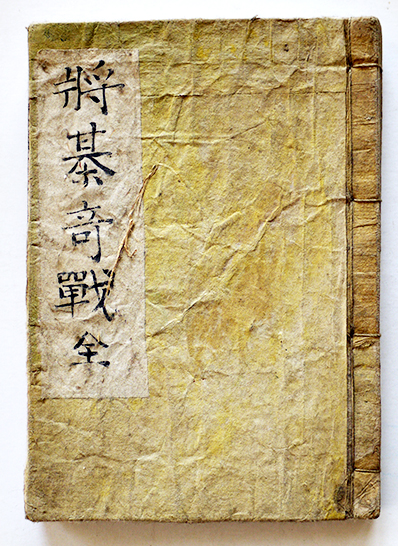 將棊奇戰全